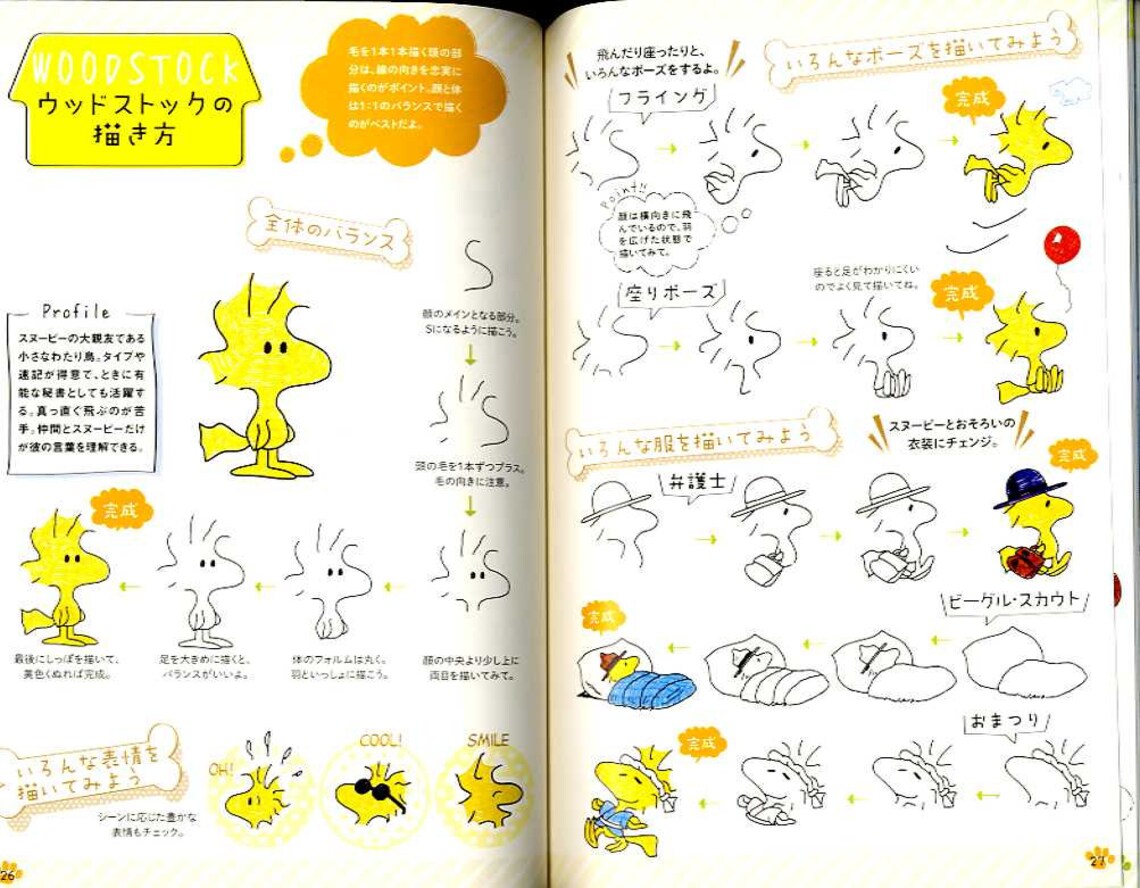 WOODSTOCK
ウッドストックの
描き方
毛を1本1本描く頭の部
分は、線の向きを忠実に
描くのがポイント。顔と体
は1:1のバランスで描く
のがベストだよ。
全体のバランス
Profile
スヌーピーの大親友である
小さなわたり鳥。タイプや
速記が得意で、ときに有
能な秘書としても活躍す
る。真っ直ぐ飛ぶのが苦
手。仲間とスヌーピーだけ
が彼の言葉を理解できる。
顔のメインとなる部分。
Sになるように描こう。
頭の毛を1本ずつプラス。
毛の向きに注意。
顔の中央より少し上に
両目を描いてみて。
体のフォルムは丸く。
羽といっしょに描こう。
足を大きめに描くと、
バランスがいいよ。
完成
最後にしっぽを描いて、
黄色くぬれば完成。
いろんな表情を
描いてみよう
シーンに応じた豊かな
表情もチェック。
OH!
COOL!
SMILE
26
飛んだり座ったりと、
いろんなポーズをするよ。
いろんなポーズを描いてみよう
フライング
完成
Point!!
顔は横向きに飛
んでいるので、羽
を広げた状態で
描いてみて。
座りポーズ
座ると足がわかりにくい
のでよく見て描いてね。
完成
いろんな服を描いてみよう
スヌーピーとおそろいの
衣装にチェンジ。
弁護士
完成
ビーグル・スカウト
完成
おまつり
完成
27